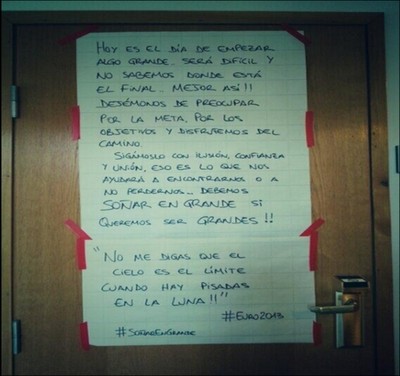 HOY ES EL DÍA DE EMPEZAR
ALGO GRANDE.. SERÁ DIFÍCIL Y
NO SABEMOS DONDE ESTÁ
EL FINAL.. MEJOR ASÍ!!
DEJÉMONOS DE PREOCUPAR
POR LA META, POR LOS
OBJETIVOS Y DISFRUTEMOS DEL
CAMINO.
SIGÁMOSLO CON ILUSIÓN, CONFIANZA
Y UNIÓN, ESO ES LO QUE NOS
AYUDARÁ A ENCONTRARNOS O A
NO PERDERNOS... DEBEMOS
SOÑAR EN GRANDE SI
QUEREMOS SER GRANDES!!
"NO ME DIGAS QUE EL
CIELO ES EL LÍMITE
CUANDO HAY PISADAS
EN LA LUNA!!"
#EURO2013
#SOÑAREnGRANDE